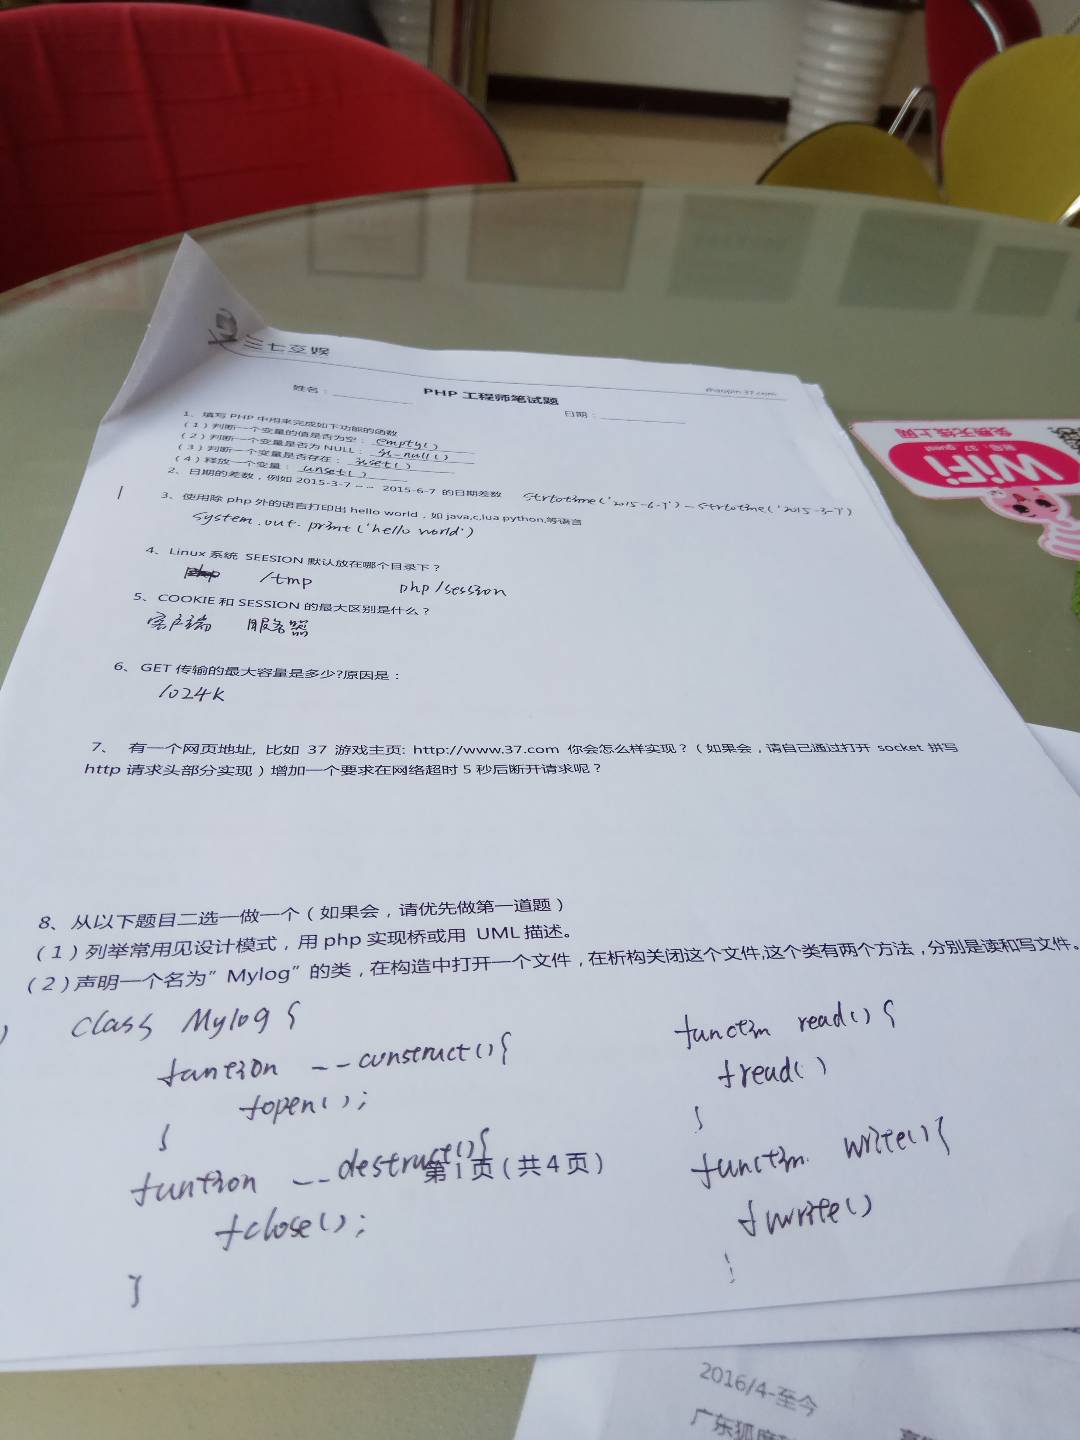 三七互娱
zhaopin.37.com
姓名：
PHP 工程师笔试题
日期：
1、填写 PHP 中用来完成如下功能的函数
（1）判断一个变量的值是否为空： empty()
（2）判断一个变量是否为 NULL： is_null()
（3）判断一个变量是否存在： isset()
（4）释放一个变量： unset()
2、日期的差数，例如 2015-3-7 ~~ 2015-6-7 的日期差数 strtotime('2015-6-7') - strtotime('2015-3-7')
3、使用除 php 外的语言打印出 hello world，如 java,c,lua python,等语言
System.out.print('hello world')
4、Linux 系统 SEESION 默认放在哪个目录下？
/tmp php/session
5、COOKIE 和 SESSION 的最大区别是什么？
客户端 服务器
6、GET 传输的最大容量是多少?原因是：
1024K
7、 有一个网页地址, 比如 37 游戏主页: http://www.37.com 你会怎么样实现？（如果会，请自己通过打开 socket 拼写
http 请求头部分实现）增加一个要求在网络超时 5 秒后断开请求呢？
8、从以下题目二选一做一个（如果会，请优先做第一道题）
（1）列举常用见设计模式，用 php 实现桥或用 UML 描述。
（2）声明一个名为”Mylog”的类，在构造中打开一个文件，在析构关闭这个文件,这个类有两个方法，分别是读和写文件。
class Mylog {
funtion __construct(){
fopen();
}
funtion __destruct(){
fclose();
}
function read(){
fread()
}
function write(){
fwrite()
}
第 1 页（共 4 页）
免费无线上网
WiFi
2016/4-至今